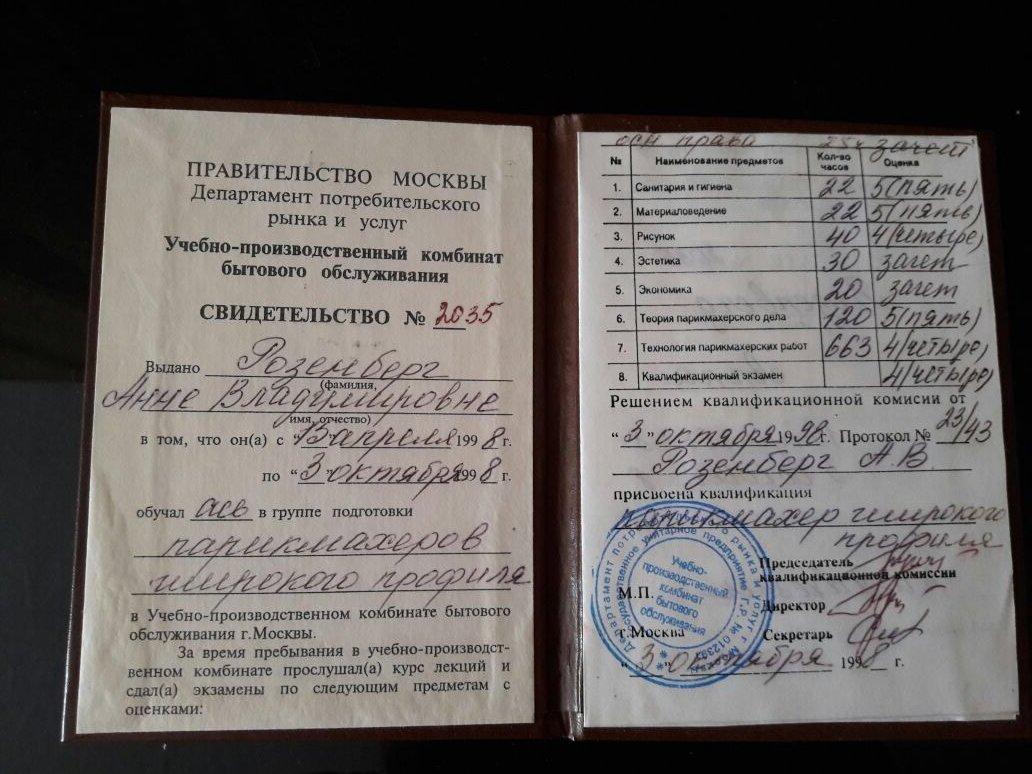 ПРАВИТЕЛЬСТВО МОСКВЫ
Департамент потребительского
рынка и услуг
Учебно-производственный комбинат
бытового обслуживания
СВИДЕТЕЛЬСТВО № 2035
Выдано Розенберг
(фамилия,
Анне Владимировне
имя, отчество)
в том, что он(а) с 13 апреля 1998 г.
по "3" октября 1998 г.
обучал ась в группе подготовки
парикмахеров
широкого профиля
в Учебно-производственном комбинате бытового
обслуживания г.Москвы.
За время пребывания в учебно-производст-
венном комбинате прослушал(а) курс лекций и
сдал(а) экзамены по следующим предметам с
оценками:
осн права зачет
№ Наименование предметов Кол-во часов Оценка
1. Санитария и гигиена 22 5(пять)
2. Материаловедение 22 5(пять)
3. Рисунок 40 4(четыре)
4. Эстетика 30 зачет
5. Экономика 20 зачет
6. Теория парикмахерского дела 120 5(пять)
7. Технология парикмахерских работ 663 4(четыре)
8. Квалификационный экзамен 4(четыре)
Решением квалификационной комисии от
"3" октября 1998г. Протокол № 23/43
Розенберг А.В.
присвоена квалификация
парикмахер широкого
профиля
Председатель
квалификационной комиссии
М.П.
Директор
г.Москва Секретарь
"3" октября 1998 г.
Учебно-
производственный
комбинат
бытового
обслуживания